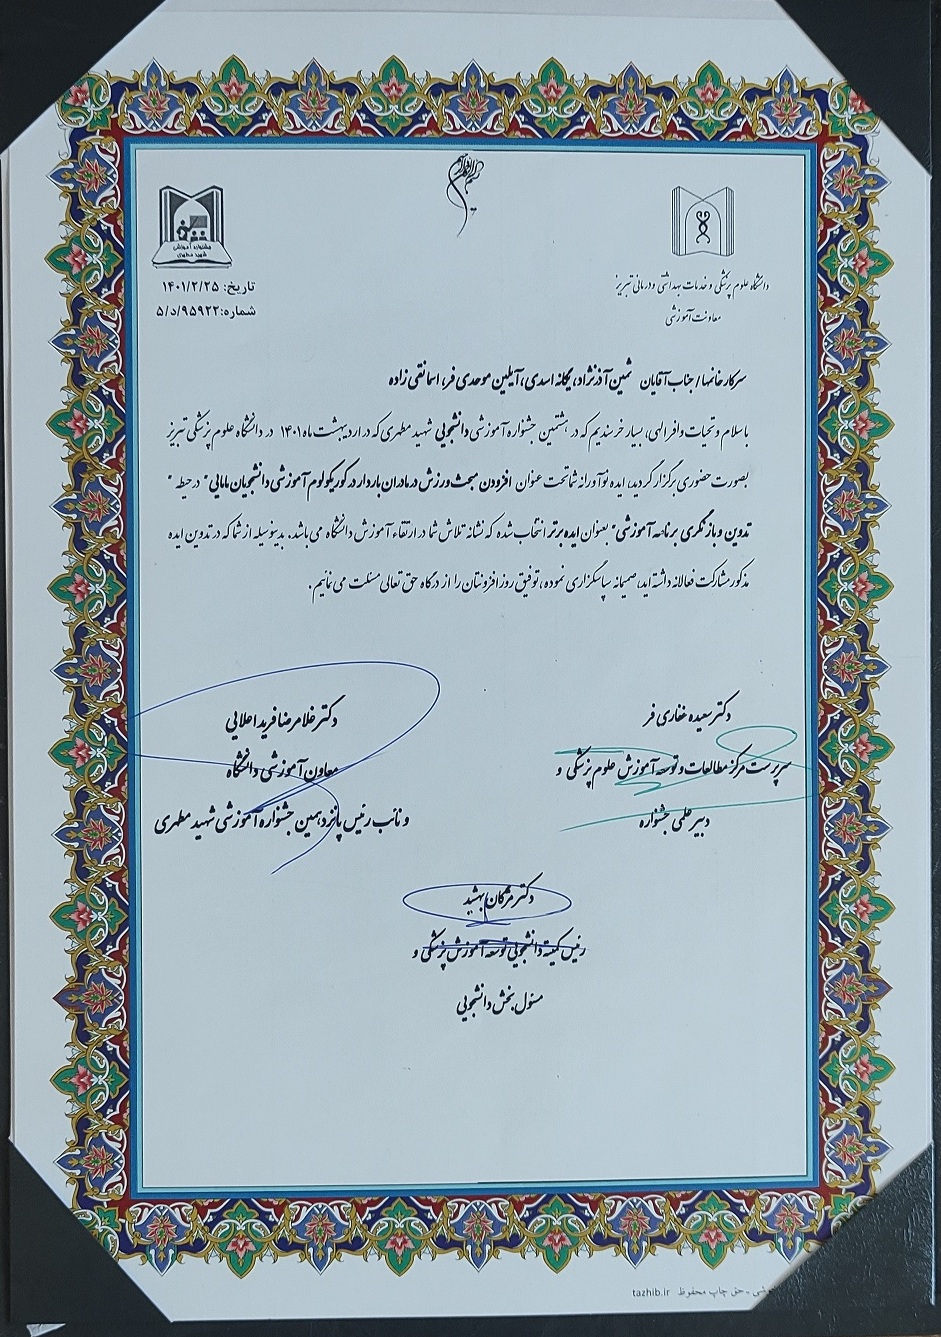 بسم الله الرحمن الرحیم
جشنواره آموزشی
شهید مطهری
تاریخ: ۱۴۰۱/۲/۲۵
شماره:۵/د/۹۵۹۲۲
دانشگاه علوم پزشکی و خدمات بهداشتی و درمانی تبریز
معاونت آموزشی
سرکار خانمها / جناب آقایان ثمین آذرنژاد، یگانه اسدی، آیلین موحدی فر، اسما نقی زاده
با سلام و تحیات وافر الهی، بسیار خرسندیم که در هشتمین جشنواره آموزشی دانشجویی شهید مطهری که در اردیبهشت ماه ۱۴۰۱ در دانشگاه علوم پزشکی تبریز
بصورت حضوری برگزار گردید، ایده نوآورانه شما تحت عنوان افزودن مبحث ورزش در مادران باردار در کوریکولوم آموزشی دانشجیان مامایی" در حیطه "
تدوین و بازنگری برنامه آموزشی" بعنوان ایده برتر انتخاب شده که نشانه تلاش شما در ارتقاء آموزش دانشگاه می باشد. بدینوسیله از شما که در تدوین ایده
مذکور مشارکت فعالانه داشته اید، صمیمانه سپاسگزاری نموده، توفیق روز افزونتان را از درگاه حق تعالی مسئلت می نمایم.
دکتر سعیده غفاری فر
سرپرست مرکز مطالعات و توسعه آموزش علوم پزشکی و
دبیر علمی جشنواره
دکتر غلامرضا فرید اعلایی
معاون آموزشی دانشگاه
و نائب رئیس پانزدهمین جشنواره آموزشی شهید مطهری
دکتر مژگان بهشید
رئیس کمیته دانشجویی توسعه آموزش پزشکی و
مسئول بخش دانشجویی
حق چاپ محفوظ tazhib.ir